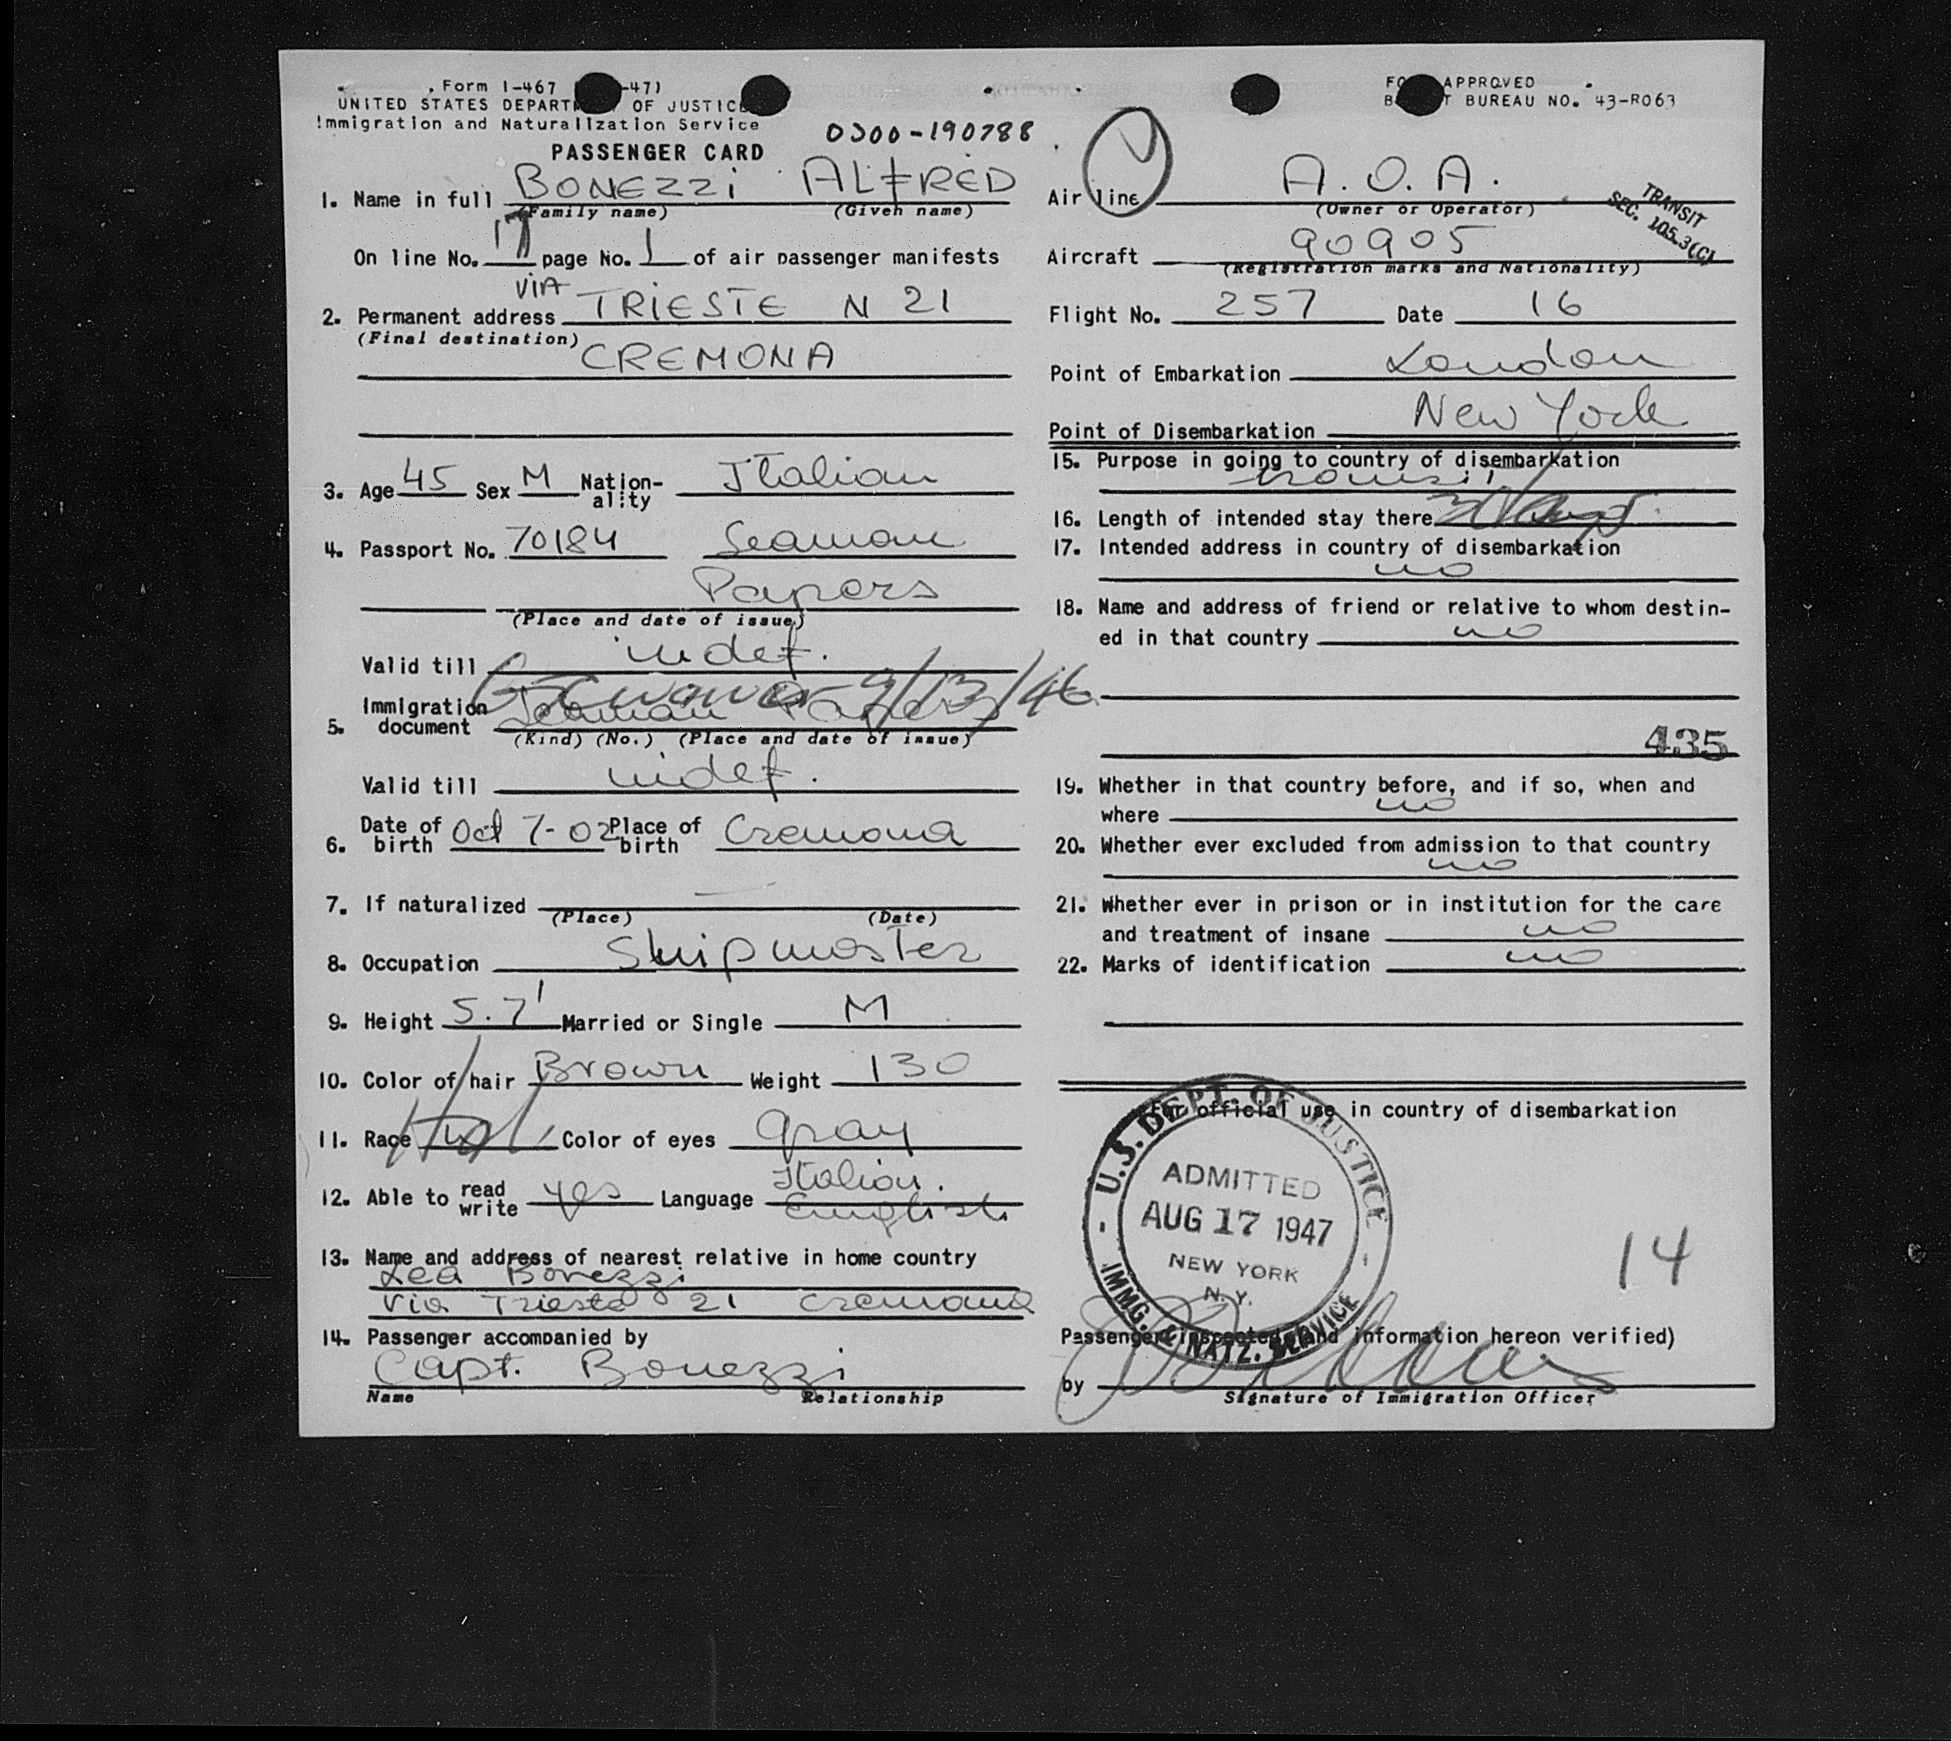 Form I-467 -47)
UNITED STATES DEPARTMENT OF JUSTICE
Immigration and Naturalization Service
0300-190788
PASSENGER CARD
1. Name in full BONEZZI ALFRED
(Family name) (Given name)
On line No. 17 page No. 1 of air passenger manifests
VIA TRIESTE N 21
2. Permanent address
(Final destination)
CREMONA
3. Age 45 Sex M Nation-ality Italian
4. Passport No. 70184 Seaman
Papers
(Place and date of issue)
Valid till indef.
9/13/46
5. Immigration document Seaman Papers
(Kind) (No.) (Place and date of issue)
Valid till indef.
6. Date of birth Oct 7-02 Place of birth Cremona
7. If naturalized —
(Place) (Date)
8. Occupation Shipmaster
9. Height 5.7' Married or Single M
10. Color of hair Brown Weight 130
11. Race Color of eyes gray
12. Able to read write yes Language Italian. English
13. Name and address of nearest relative in home country
Lea Bonezzi
Via Trieste 21 Cremona
14. Passenger accompanied by
Capt. Bonezzi
Name Relationship
FORM APPROVED
BUDGET BUREAU NO. 43-R063
Air line A.O.A.
(Owner or Operator)
TRANSIT
SEC. 105.3(C)
Aircraft 90905
(Registration marks and Nationality)
Flight No. 257 Date 16
Point of Embarkation London
Point of Disembarkation New York
15. Purpose in going to country of disembarkation
transit
16. Length of intended stay there
17. Intended address in country of disembarkation
no
18. Name and address of friend or relative to whom destin-
ed in that country no
435
19. Whether in that country before, and if so, when and
where no
20. Whether ever excluded from admission to that country
no
21. Whether ever in prison or in institution for the care
and treatment of insane no
22. Marks of identification no
For official use in country of disembarkation
U.S. DEPT. OF JUSTICE
ADMITTED
AUG 17 1947
NEW YORK
N.Y.
IMMG. & NATZ. SERVICE
14
Passenger (inspected and information hereon verified)
by
Signature of Immigration Officer